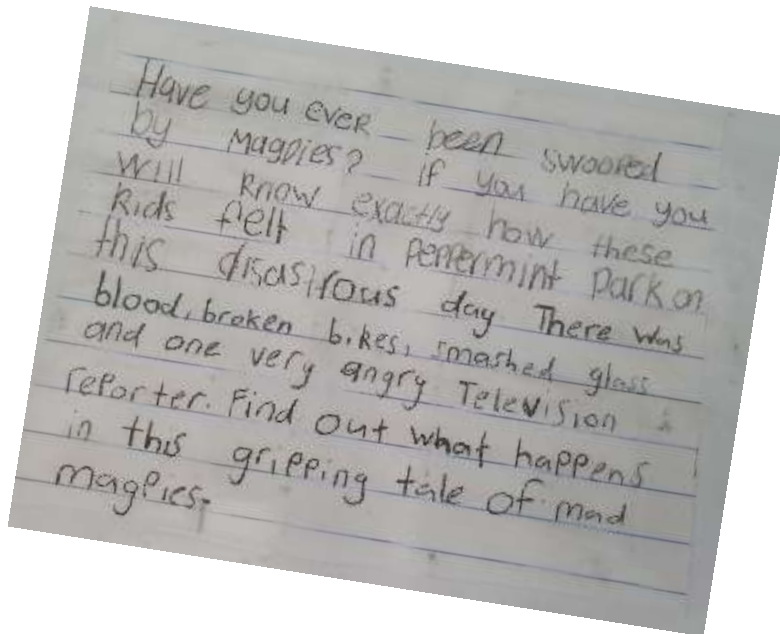 Have you ever been swooped
by magpies? if you have you
will know exactly how these
kids felt in peppermint park on
this disastrous day There was
blood, broken bikes, smashed glass
and one very angry Television
reporter. Find out what happens
in this gripping tale of mad
magpies.